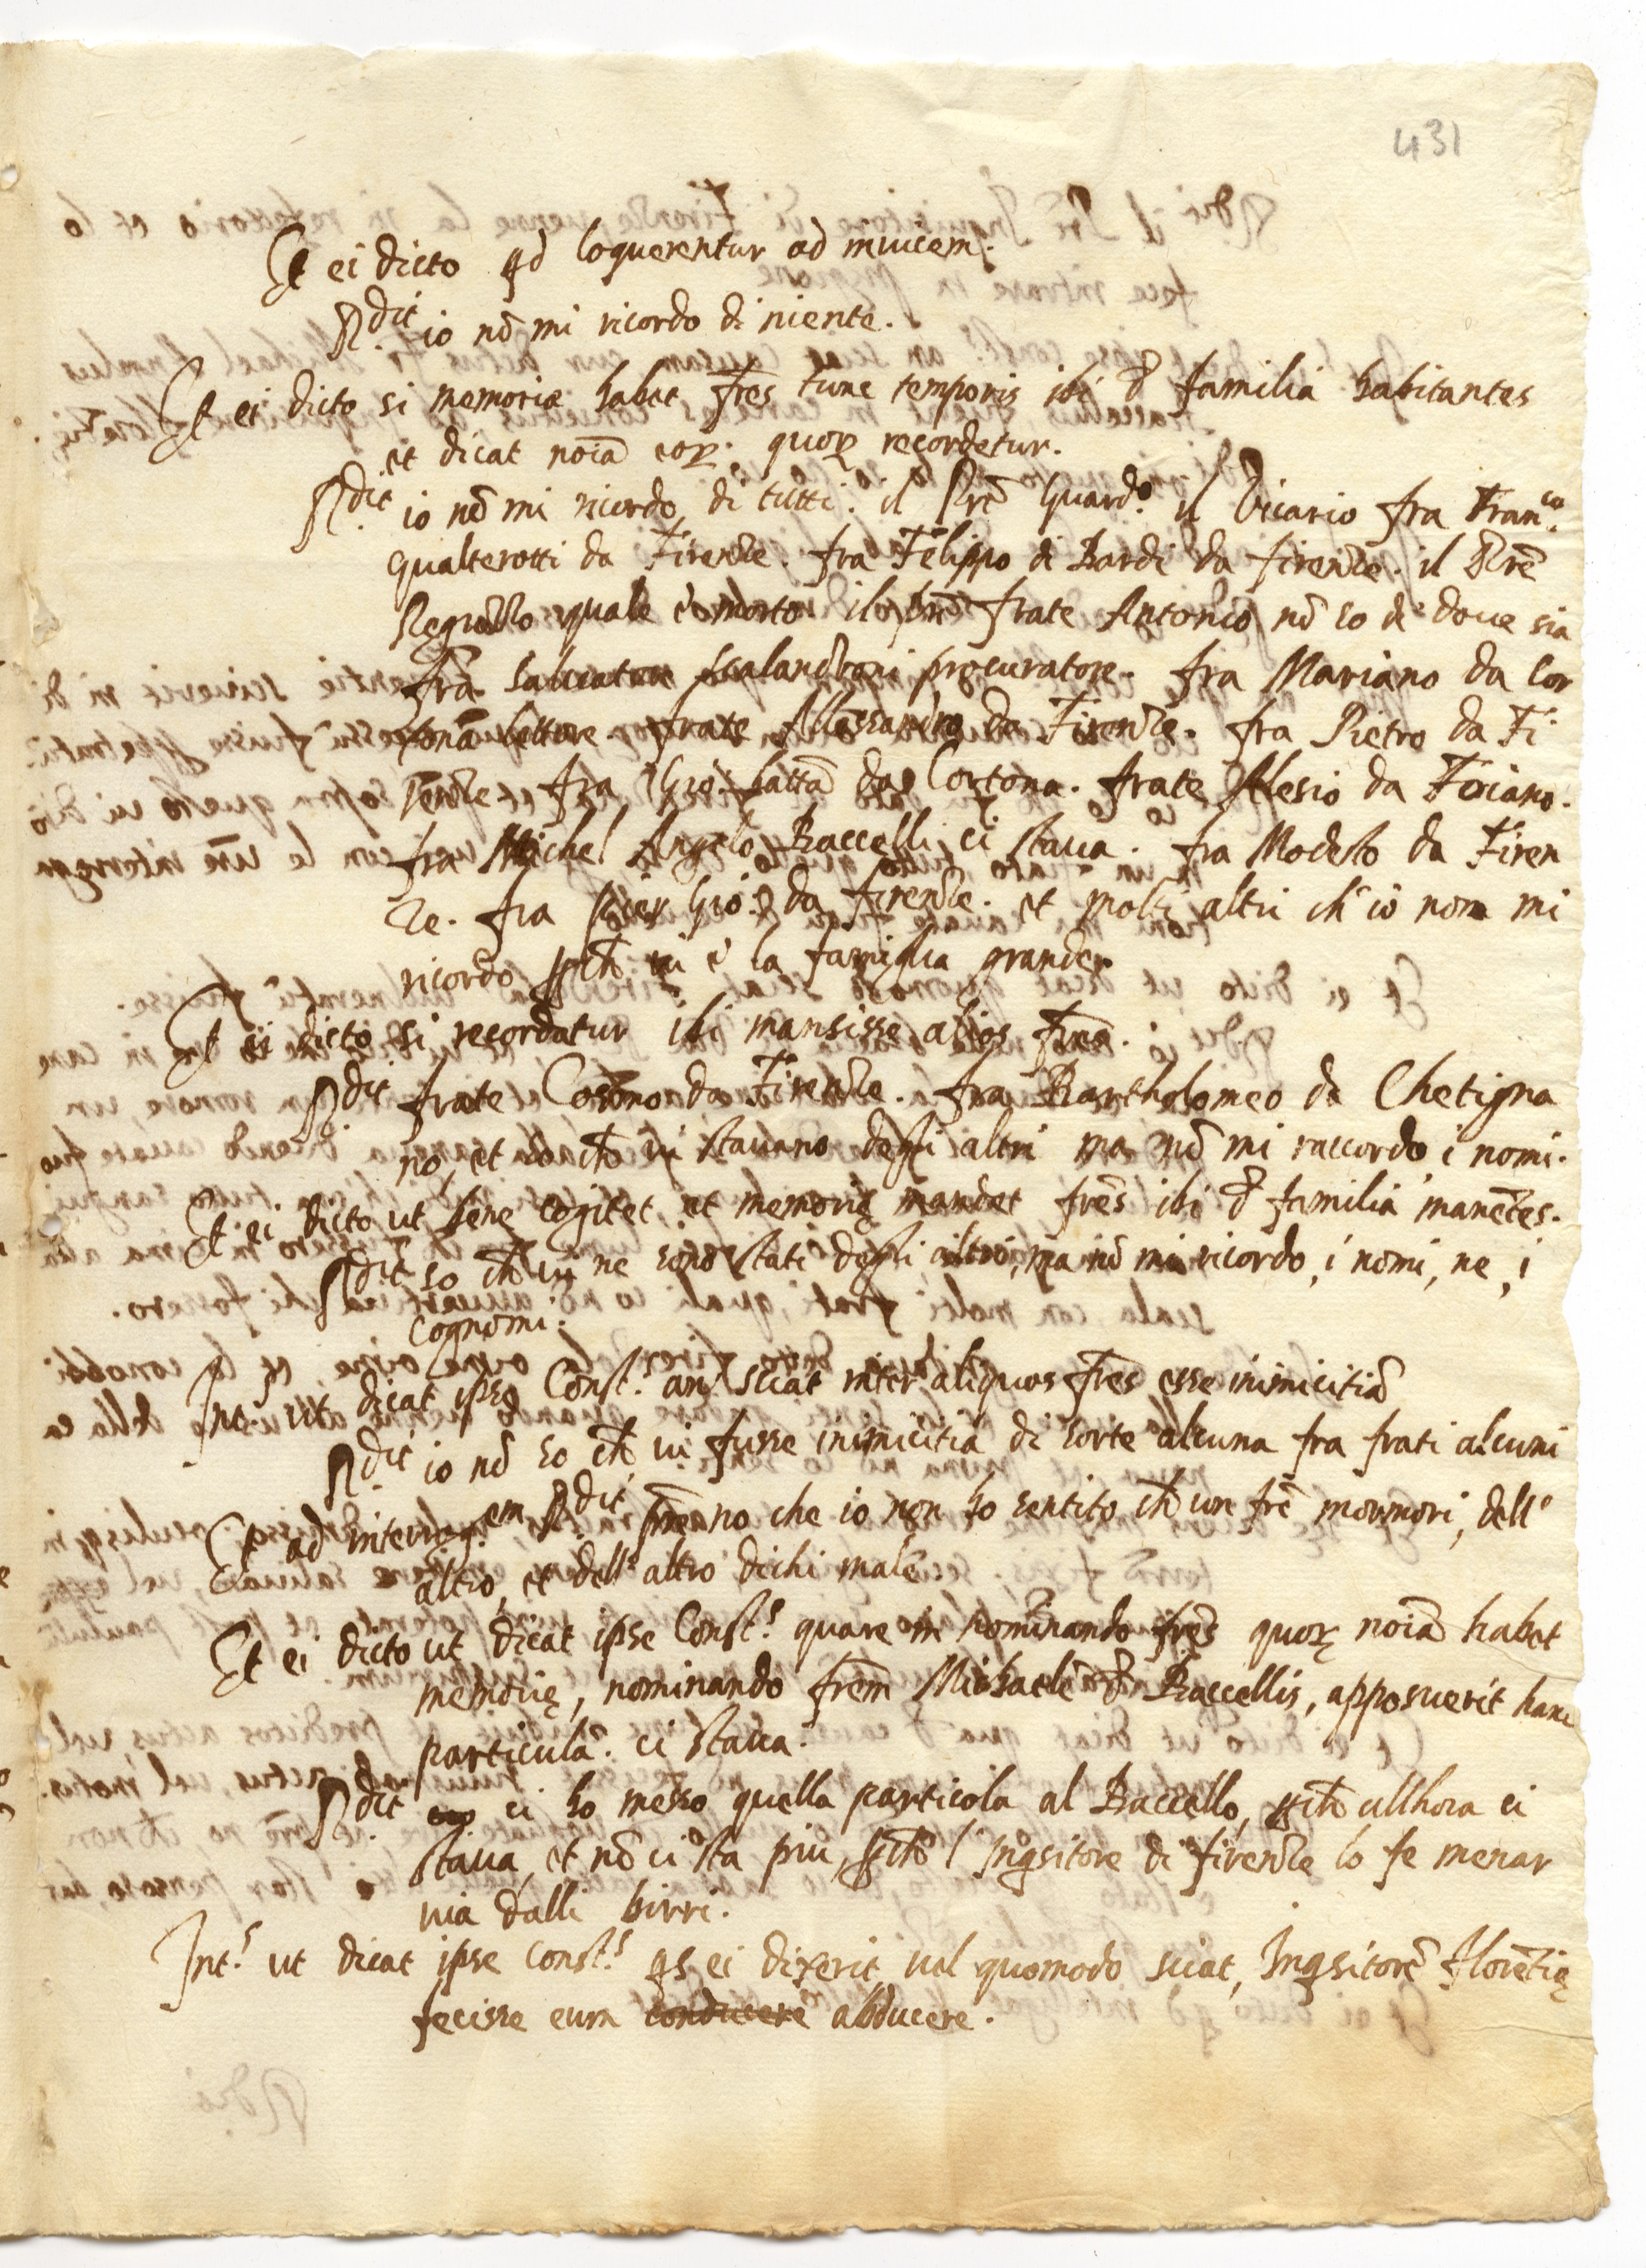 431
Et ei dicto qd loquerentur ad inuicem.
Rdit io nõ mi ricordo di niente.
Et ei dicto si memoriæ habet fres tunc temporis ibi d familia habitantes
et dicat noia eoꝝ. quoꝝ recordetur.
Rdit io nõ mi ricordo di tutti. il Pre Guardo. il Vicario fra Franco.
Gualterotti da Firenze. fra Felippo di Bardi da firenze. il Pre
quale è morto. frate Antonio nõ so di doue sia
fra procuratore. fra Mariano da Cor
tona lettore frate Alessandro da Firenze. fra Pietro da Fi
renze fra Gio: batta da Cortona. frate Alesio da Foiano.
fra Michel Angelo Baccelli ci staua. fra Modesto da Firen
ze. fra Pier Gio: da firenze. et molti altri ch' io non mi
ricordo pche ui è la famiglia grande.
Et ei dicto si recordatur ibi mansisse alios fres.
Rdit frate Cosimo da Firenze. fra Bartholomeo da Chetigna
no, et so che ui stauano degli altri ma nõ mi raccordo i nomi.
Et ei dicto ut bene cogitet, et memorię mandet fres ibi d familia manẽtes.
Rdit so che ui ne sono stati degli altri, ma nõ mi ricordo, i nomi, ne, i
cognomi.
Ints ut dicat ipse Const.s an sciat inter aliquos fres esse inimicitiã
Rdit io nõ so che ui fusse inimicitia di sorte alcuna fra frati alcuni
Et ad interrog.em Rdit meno che io non ho sentito che un fre mormori, dell'
altro, et dell' altro dichi male
Et ei dicto ut dicat ipse Const.s quare in nominando fres quoꝝ noia habet
memorię, nominando frem Michaelẽ d Baccellis, apposuerit hanc
particulã. ci staua.
Rdit ci ho messo quella particola al Baccello, pche allhora ci
staua, et nõ ci sta piu, pche l' Inqsitore di firenze lo fe menar
uia dalli birri.
Int.s ut dicat ipse Const.s qs ei dixerit, uel quomodo sciat, Inqsitorẽ Florẽtię
fecisse eum conducere abducere.